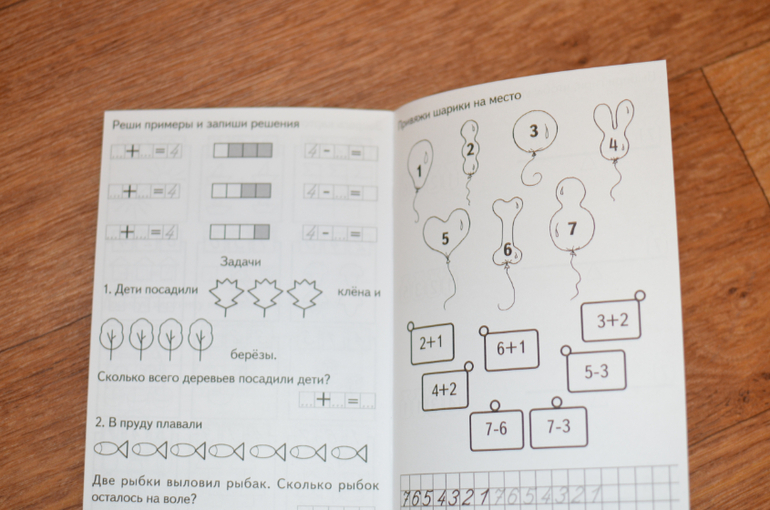 Реши примеры и запиши решения
+ = 4 4 - =
+ = 4 4 - =
+ = 4 4 - =
Задачи
1. Дети посадили клёна и
берёзы.
Сколько всего деревьев посадили дети?
+ =
2. В пруду плавали
Две рыбки выловил рыбак. Сколько рыбок
осталось на воле?
Привяжи шарики на место
1 2 3 4
5 6 7
2+1 6+1 3+2
4+2 5-3
7-6 7-3
7654321 7654321